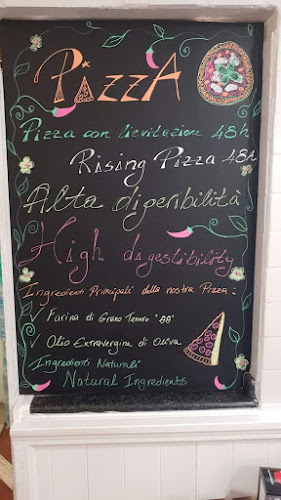 PizzA
Pizza con lievitazione 48h
Rising Pizza 48h
Alta digeribilità
High digestibility
Ingredienti Principali della nostra Pizza:
✓ Farina di Grano Tenero "00"
✓ Olio Extravergine di Oliva
Ingredienti Naturali
Natural Ingredients